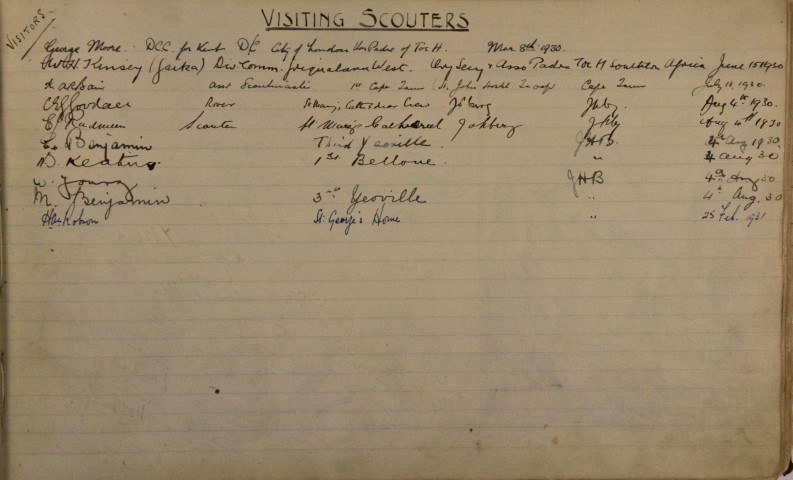 VISITORS
VISITING SCOUTERS
George Moore. DCC. for Kent D/C City of London Padre of Toc H. Mar 8th 1930.
Kinsey (Jaska) Div Comm. Griqualand West. Org Secy & Asso Padre Toc H Southern Africa June 15 1930
Asst Scoutmaster 1st Cape Town St. John Troop Cape Town July 11, 1930
Rover St Mary's Cath: Rover Crew Jo'burg Jhbg. Aug 4th 1930.
E. Scouter St Mary's Cathedral Johburg Jhbg Aug 4th 1930
L. Benjamin Third Yeoville JHB. 4th Aug 1930.
D. Keating 1st Bellevue " 4 Aug 30
W. Young JHB 4th Aug 30
M. Benjamin 3rd Yeoville " 4th Aug. 30
Robson St. George's Home " 25 Feb. 1931